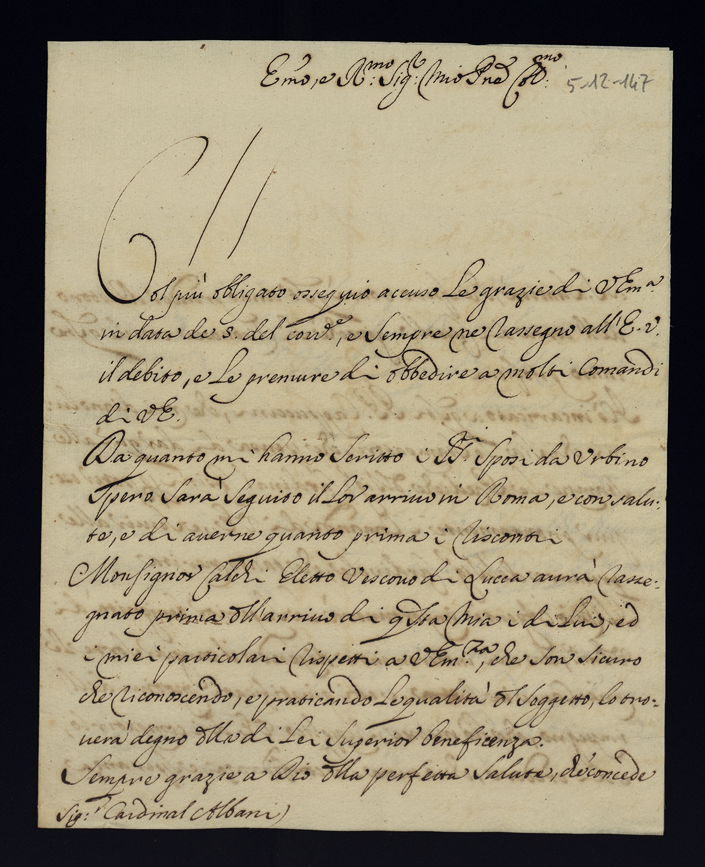 Emo, e Rmo: Sig.e Mio Pne Colmo:
5-12-147
Col più obligato ossequio accuso Le grazie di VEma.
in data de 8. del corre., e sempre ne rassegno all'E.V.
il debito, e Le premure di obbedire a molti Comandi
di VE.
Da quanto mi hanno scritto i SSri Sposi da Urbino
Spero Sarà Seguito il Lor arrivo in Roma, e con salu-
te, e di averne quanto prima i riscontri
Monsignor Calchi Eletto Vescovo di Lucca aurà rasse-
gnato prima dell'arrivo di qsta Mia i di Lui, ed
i miei particolari rispetti a VEm.za, che son sicuro
che riconoscendo, e praticando Le qualità del Soggetto, lo tro-
verà degno della di Lei Superior beneficenza.
Sempre grazie a Dio della perfetta salute, che concede
Sig:r Cardinal Albani